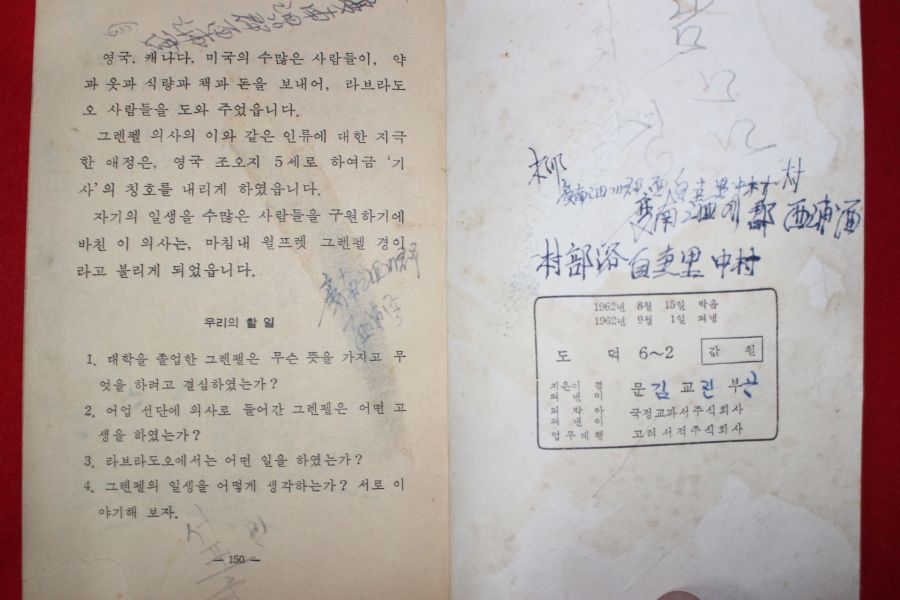 영국, 캐나다, 미국의 수많은 사람들이, 약
과 옷과 식량과 책과 돈을 보내어, 라브라도
오 사람들을 도와 주었읍니다.
그렌펠 의사의 이와 같은 인류에 대한 지극
한 애정은, 영국 조오지 5세로 하여금 ‘기
사’의 칭호를 내리게 하였읍니다.
자기의 일생을 수많은 사람들을 구원하기에
바친 이 의사는, 마침내 윌프렛 그렌펠 경이
라고 불리게 되었읍니다.
우리의 할 일
1. 대학을 졸업한 그렌펠은 무슨 뜻을 가지고 무
엇을 하려고 결심하였는가?
2. 어업 선단에 의사로 들어간 그렌펠은 어떤 고
생을 하였는가?
3. 라브라도오에서는 어떤 일을 하였는가?
4. 그렌펠의 일생을 어떻게 생각하는가? 서로 이
야기해 보자.
— 150 —
郡 西浦洒
村部落 自 里 中村
1962년 8월 15일 박음
1962년 9월 1일 펴냄
도 덕 6~2 값 원
지은이 겸 펴낸이 문 김 교 린 부
되박아 펴낸이 국정교과서주식회사
업무대행 고려서적주식회사